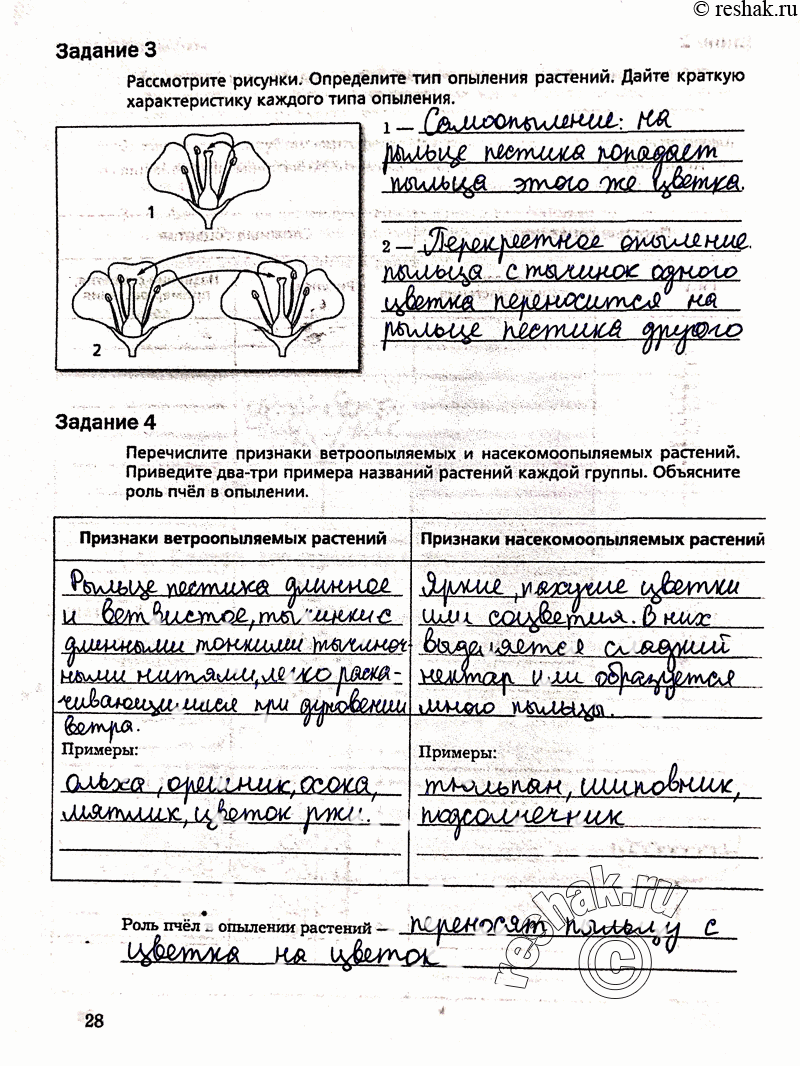 © reshak.ru
Задание 3
Рассмотрите рисунки. Определите тип опыления растений. Дайте краткую
характеристику каждого типа опыления.
1 — Самоопыление: на
рыльце пестика попадает
пыльца этого же цветка.
2 — Перекрестное опыление.
пыльца с тычинок одного
цветка переносится на
рыльце пестика другого
1
2
Задание 4
Перечислите признаки ветроопыляемых и насекомоопыляемых растений.
Приведите два-три примера названий растений каждой группы. Объясните
роль пчёл в опылении.
Признаки ветроопыляемых растений
Рыльце пестика длинное
и ветвистое, тычинки с
длинными тонкими тычиноч-
ными нитями, легко раска-
чивающимися при дуновении
ветра.
Примеры:
ольха, орешник, осока,
мятлик, цветок ржи.
Признаки насекомоопыляемых растений
Яркие, пахучие цветки
или соцветия. В них
выделяется сладкий
нектар или образуется
много пыльцы.
Примеры:
тюльпан, шиповник,
подсолнечник
Роль пчёл в опылении растений – переносят пыльцу с
цветка на цветок
reshak.ru
©
28